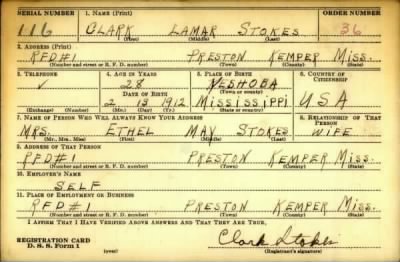 SERIAL NUMBER 1. NAME (Print) ORDER NUMBER
116 CLARK LAMAR STOKES 36
(First) (Middle) (Last)
2. ADDRESS (Print)
RFD#1 PRESTON KEMPER MISS.
(Number and street or R. F. D. number) (Town) (County) (State)
3. TELEPHONE 4. AGE IN YEARS 5. PLACE OF BIRTH 6. COUNTRY OF CITIZENSHIP
28 NESHOBA
DATE OF BIRTH (Town or county)
2 13 1912 MISSISSIPPI USA
(Exchange) (Number) (Mo.) (Day) (Yr.) (State or country)
7. NAME OF PERSON WHO WILL ALWAYS KNOW YOUR ADDRESS 8. RELATIONSHIP OF THAT PERSON
MRS. ETHEL MAY STOKES WIFE
(Mr., Mrs., Miss) (First) (Middle) (Last)
9. ADDRESS OF THAT PERSON
RFD#1 PRESTON KEMPER MISS.
(Number and street or R. F. D. number) (Town) (County) (State)
10. EMPLOYER'S NAME
SELF
11. PLACE OF EMPLOYMENT OR BUSINESS
RFD#1 PRESTON KEMPER MISS.
(Number and street or R. F. D. number) (Town) (County) (State)
I AFFIRM THAT I HAVE VERIFIED ABOVE ANSWERS AND THAT THEY ARE TRUE.
Clark Stokes
REGISTRATION CARD
D. S. S. Form 1 (over) (Registrant's signature)